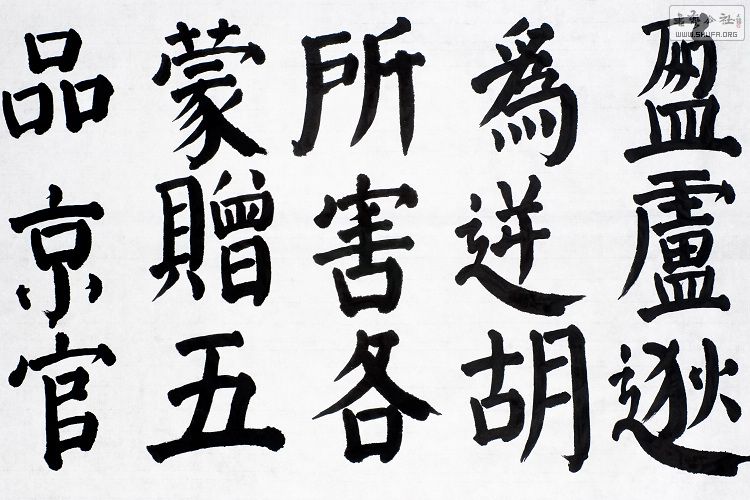 盈盧逖
為逆胡
所害各
蒙贈五
品京官
WWW.SHUFA.ORG